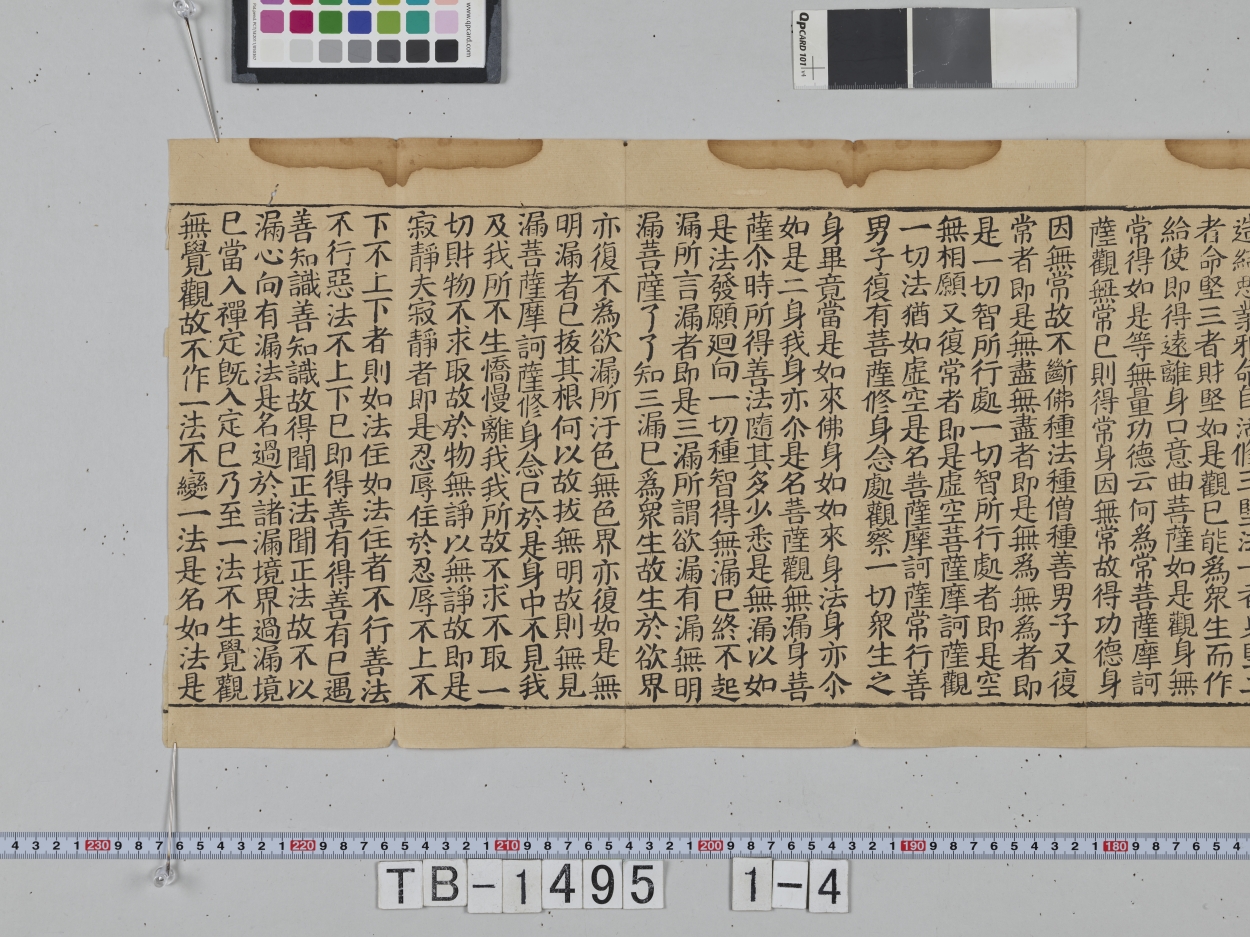 者命堅三者財堅如是觀已能爲衆生而作
給使即得遠離身口意曲菩薩如是觀身無
常得如是等無量功德云何為常菩薩摩訶
薩觀無常已則得常身因無常故得功德身
因無常故不斷佛種法種僧種善男子又復
常者即是無盡無盡者即是無爲無爲者即
是一切智所行處一切智所行處者即是空
無相願又復常者即是虛空菩薩摩訶薩觀
一切法猶如虛空是名菩薩摩訶薩常行善
男子復有菩薩修身念處觀察一切衆生之
身畢竟當是如來佛身如如來身法身亦尒
如是二身我身亦尒是名菩薩觀無漏身菩
薩尒時所得善法隨其多少悉是無漏以如
是法發願廻向一切種智得無漏已終不起
漏所言漏者即是三漏所謂欲漏有漏無明
漏菩薩了了知三漏已爲衆生故生於欲界
亦復不為欲漏所汙色無色界亦復如是無
明漏者已拔其根何以故拔無明故則無見
漏菩薩摩訶薩修身念已於是身中不見我
及我所不生憍慢離我我所故不求不取一
切財物不求取故於物無諍以無諍故即是
寂靜夫寂靜者即是忍辱住於忍辱不上不
下不上下者則如法住如法住者不行善法
不行惡法不上下已即得善有得善有已遇
善知識善知識故得聞正法聞正法故不以
漏心向有漏法是名過於諸漏境界過漏境
已當入禪定既入定已乃至一法不生覺觀
無覺觀故不作一法不變一法是名如法是
www.qpcard.com
QPCARD 101 v4
4 3 2 1 230 9 8 7 6 5 4 3 2 1 220 9 8 7 6 5 4 3 2 1 210 9 8 7 6 5 4 3 2 1 200 9 8 7 6 5 4 3 2 1 190 9 8 7 6 5 4 3 2 1 180 9 8 7 6 5 4
TB-1495 1-4